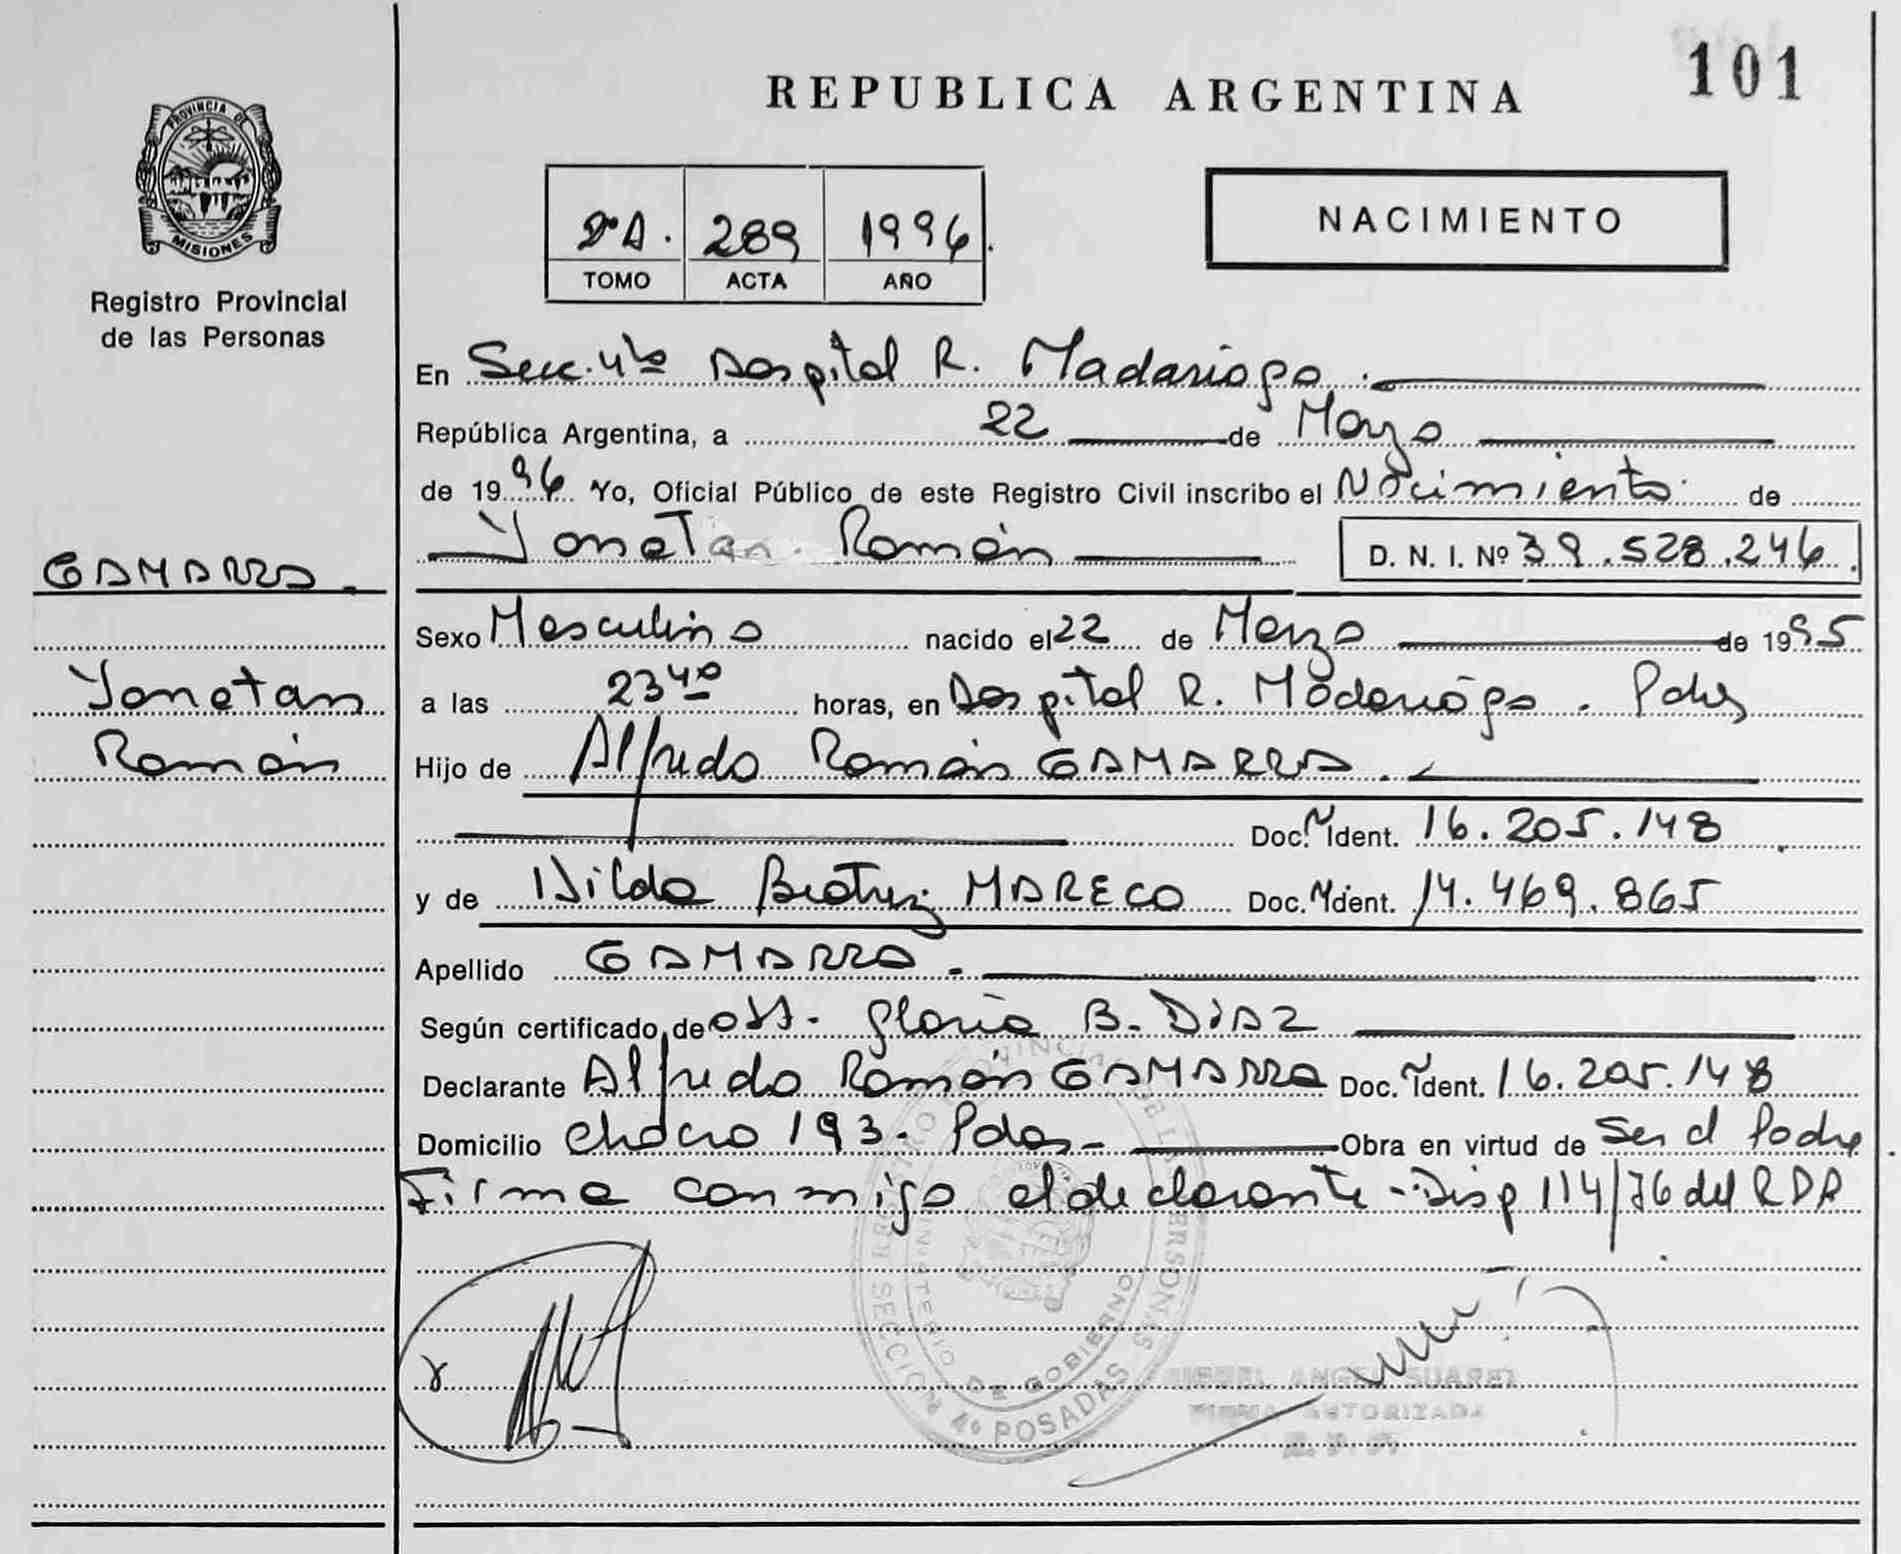 101
REPUBLICA ARGENTINA
PROVINCIA DE
MISIONES
Registro Provincial
de las Personas
2º A. 289 1996.
TOMO ACTA AÑO
NACIMIENTO
En Secc. 4ta Hospital R. Madariaga.
República Argentina, a 22 de Marzo
de 1996 Yo, Oficial Público de este Registro Civil inscribo el Nacimiento de
Yonatan Román D. N. I. Nº 39.528.246.
GAMARRA.
Yonatan
Román
Sexo Masculino nacido el 22 de Marzo de 1995
a las 23 40 horas, en Hospital R. Madariaga. Pdas
Hijo de Alfredo Román GAMARRA.
Doc. Ident. 16.205.148
y de Hilda Beatriz MARECO Doc. Ident. 14.469.865
Apellido GAMARRA.
Según certificado de obst. Gloria B. DIAZ
Declarante Alfredo Román GAMARRA Doc. Ident. 16.205.148
Domicilio Chaco 193. Pdas- Obra en virtud de Ser el Padre
Firma conmigo el declarante - Disp 114/76 del RDP
REGISTRO PROVINCIAL DE LAS PERSONAS
MINISTERIO DE GOBIERNO
SECCION 4º POSADAS
MIGUEL ANGEL SUAREZ
FIRMA AUTORIZADA